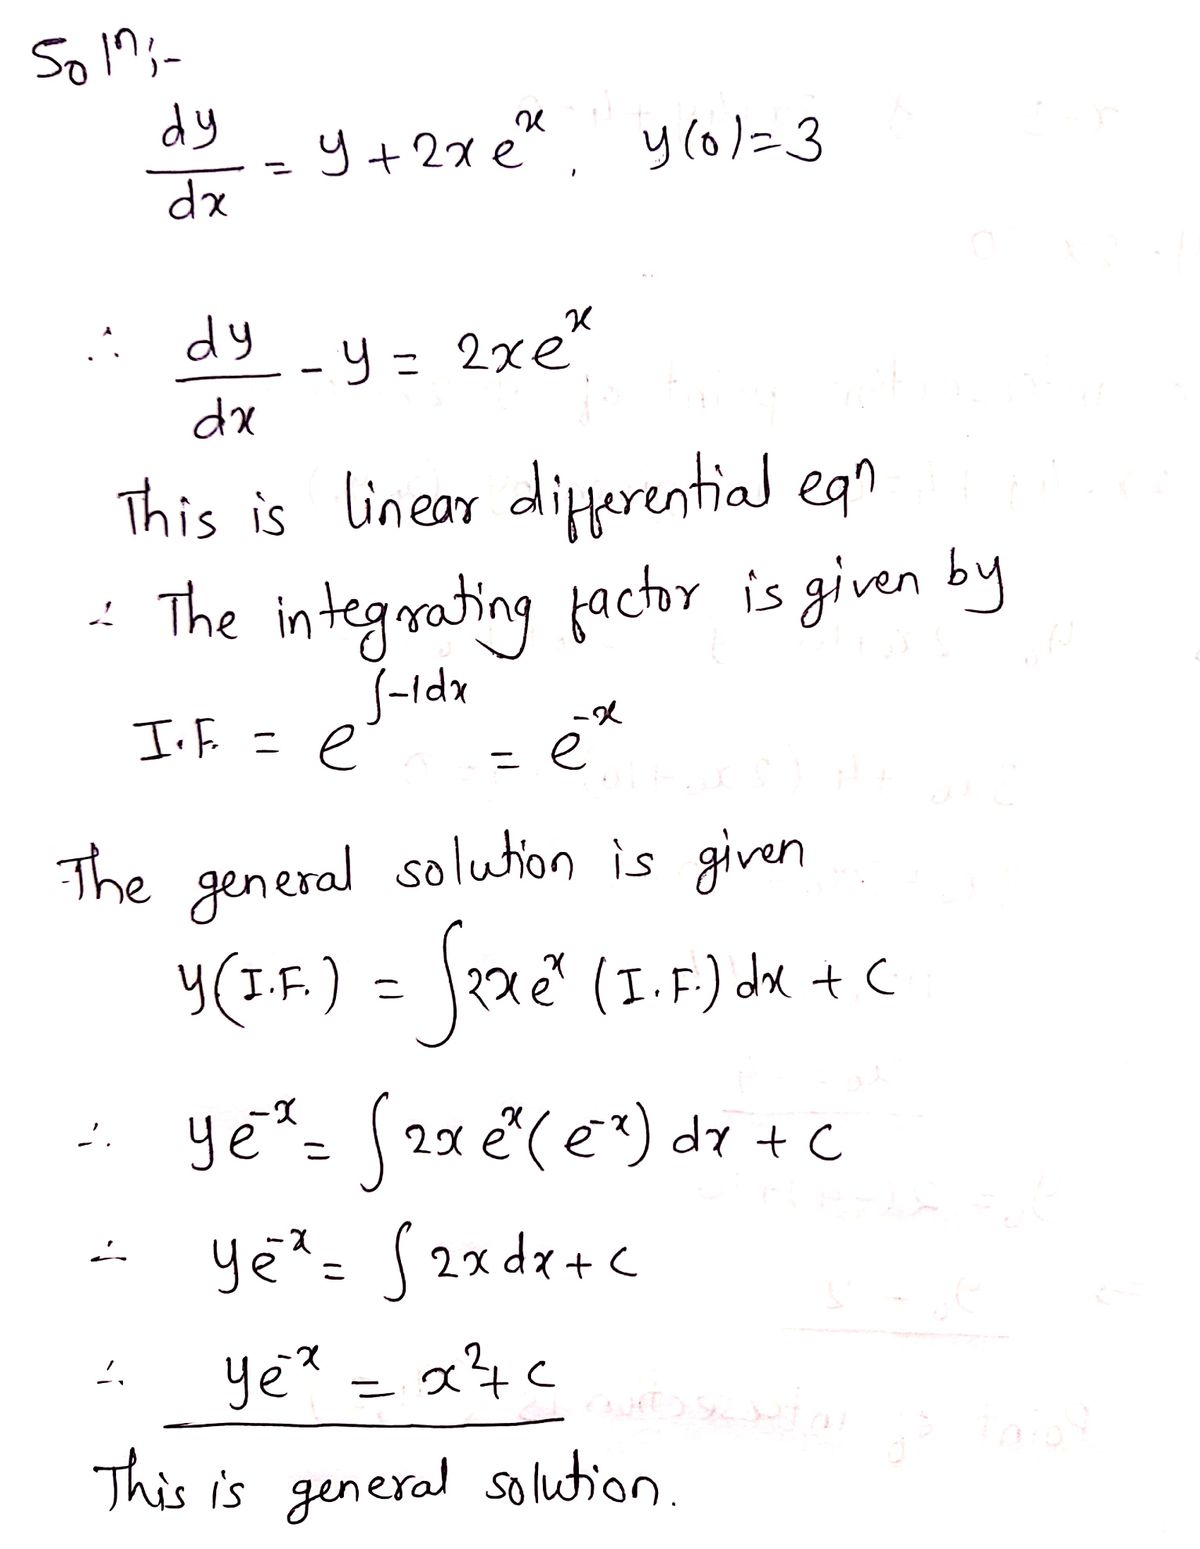 Soln;-
dy/dx = y + 2x e^x, y(0) = 3
∴ dy/dx - y = 2xe^x
This is linear differential eqn
∴ The integrating factor is given by
I.F. = e^∫-1dx = e^-x
The general solution is given
y(I.F.) = ∫2xe^x (I.F.) dx + C
∴ ye^-x = ∫ 2x e^x (e^-x) dx + C
∴ ye^-x = ∫ 2x dx + C
∴ ye^-x = x^2 + C
This is general solution.